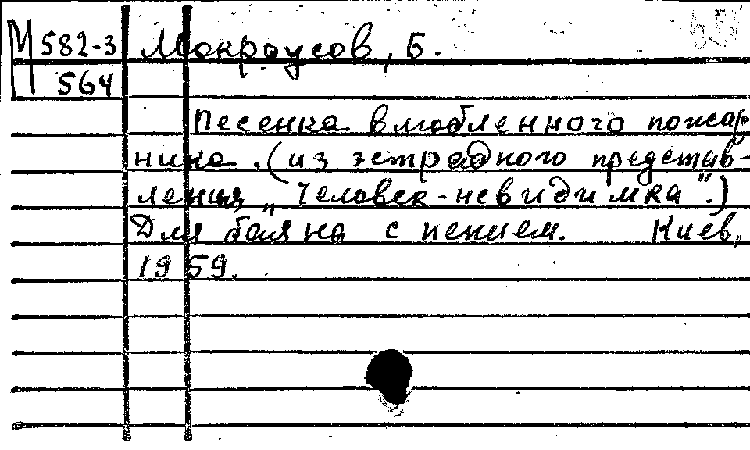 М 582-3
564
Мокроусов, Б.
Песенка влюбленного пожар
ника. (из эстрадного представ-
ления „Человек-невидимка".)
Для баяна с пением. Киев,
1959.